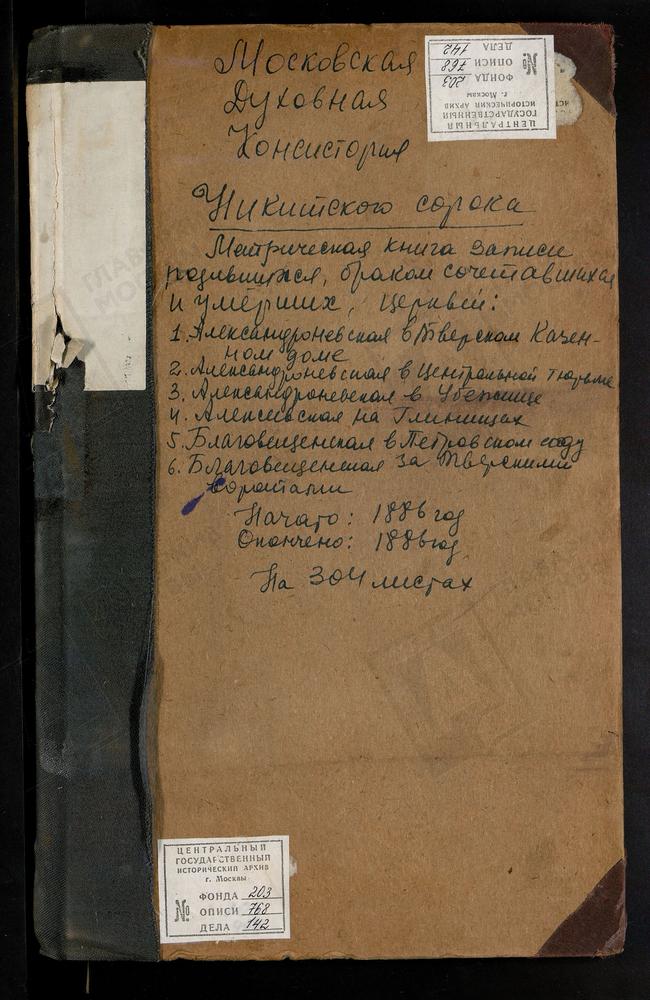 Московская
Духовная
Консистория
ЦЕНТРАЛЬНЫЙ
ГОСУДАРСТВЕННЫЙ
ИСТОРИЧЕСКИЙ АРХИВ
г. Москвы
№
ФОНДА 203
ОПИСИ 768
ДЕЛА 142
Никитского сорока
Метрическая книга записи
родившихся, браком сочетавшихся
и умерших, церквей:
1. Александроневская в Тверском Казен-
ном доме
2. Александроневская в Центральной тюрьме
3. Александроневская в Убежище
4. Алексиевская на Глинищах
5. Благовещенская в Петровском саду
6. Благовещенская за Тверскими
воротами
Начато: 1886 год
Окончено: 1886 год
На 304 листах
ЦЕНТРАЛЬНЫЙ
ГОСУДАРСТВЕННЫЙ
ИСТОРИЧЕСКИЙ АРХИВ
г. Москвы
№
ФОНДА 203
ОПИСИ 768
ДЕЛА 142